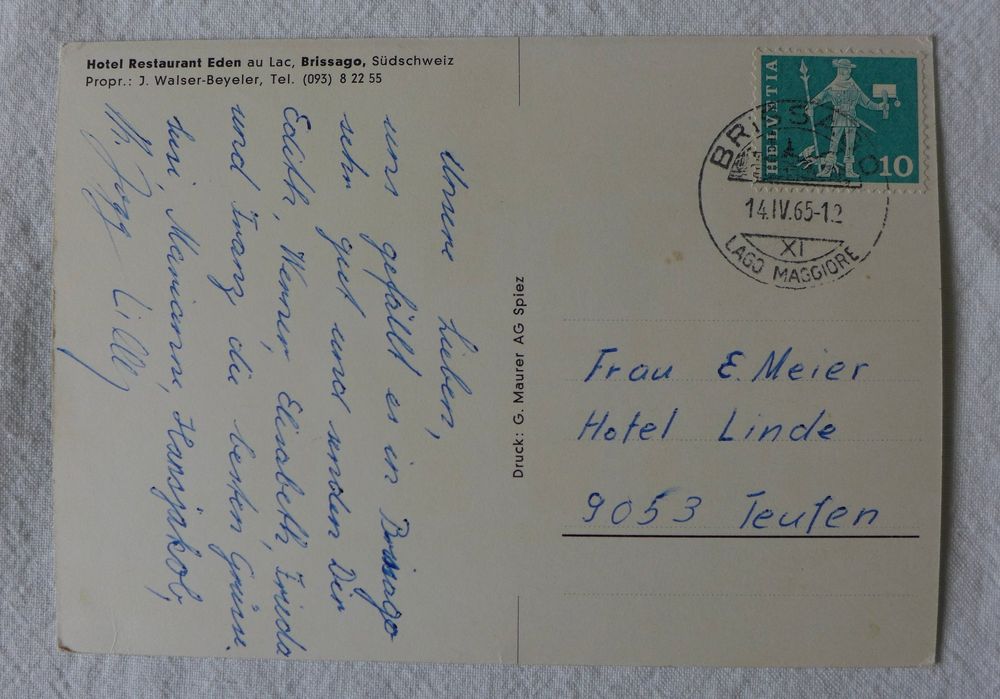 Hotel Restaurant Eden au Lac, Brissago, Südschweiz
Propr.: J. Walser-Beyeler, Tel. (093) 8 22 55
Unsere Lieben,
uns gefällt es in Brissago
sehr gut und senden Dir
Edith, Werner, Elisabeth, Frieda
und Franz die besten Grüsse.
Susi, Marianne, Hansjakob,
Lilly
Druck: G. Maurer AG Spiez
HELVETIA
10
BRISSAGO
14.IV.65-12
XI
LAGO MAGGIORE
Frau E. Meier
Hotel Linde
9053 Teufen